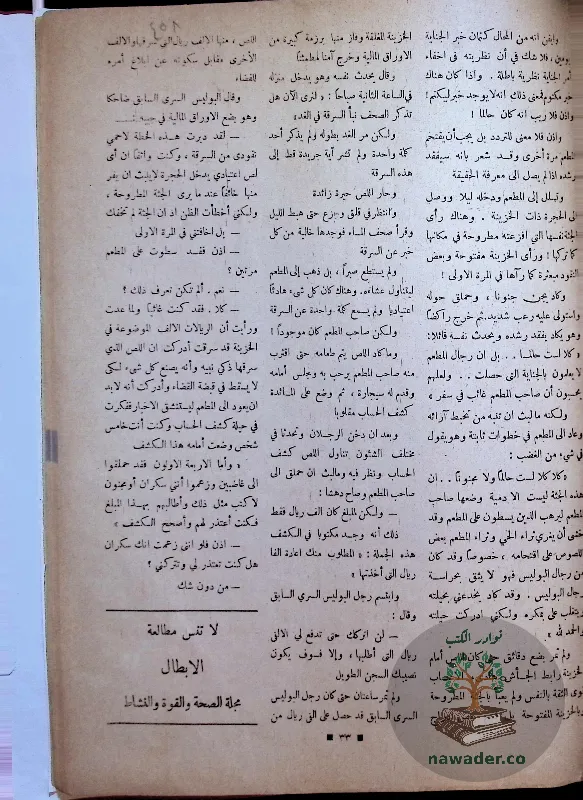 وايقن انه من المحال كتمان خبر الجناية
يومين ، فلا شك في أن نظريته في اخفاء
أمر الجناية نظرية باطلة . واذا كان هناك
خبر مكتوم فمعنى ذلك انه لا يوجد خبر ليكتم !
واذن فلا ريب انه كان حالما !
واذن فلا معنى للتردد بل يجب أن يقتحم
المطعم مرة أخرى وقد شعر بانه سيفقد
رشده اذا لم يصل الى معرفة الحقيقة
وتسلل إلى المطعم ودخله ليلا ووصل
الى الحجرة ذات الخزينة . وهناك رأى
الجثة نفسها التي افزعته مطروحة في مكانها
كما تركها ! ورأى الخزينة مفتوحة وبعض
النقود مبعثرة كما رآها في المرة الاولى !
وكاد يجن جنونا ، وحملق حوله
واستولى عليه رعب شديد . ثم خرج راكضاً
وهو يكاد يفقد رشده ويحدث نفسه قائلا :
« كلا لست حالماً . . . بل ان رجال المطعم
لا يعلمون بالجناية التي حصلت . . ولعلهم
يحسبون أن صاحب المطعم غائب في سفر »
ولكنه ما لبث ان تنبه من تخبط آرائه
وعاد الى المطعم في خطوات ثابتة وهو يقول
في شيء من الغضب :
« كلا كلا لست حالماً ولا مجنوناً . . ان
هذه الجثة ليست الا دمية وضعها صاحب
المطعم ليرهب الذين يسطون على المطعم وقد
خشى أن يغري ثراء الحي وثراء المطعم بعض
اللصوص على اقتحامه ، خصوصاً وقد كان
من رجال البوليس فهو لا يثق بحراسة
رجال البوليس . وقد كاد يخدعني بحيلته
ويتغلب على بمكره ولكني ادركت حيلته
والحمد لله »
ولم تمر بضع دقائق حتى كان اللص أمام
الخزينة رابط الجأش
قوى الثقة بالنفس ولم يعبأ المطروحة
بالخزينة المفتوحة
الخزينة المغلقة وفاز منها برزمة كبيرة من
الاوراق المالية وخرج آمنا مطمئنا
وقال يحدث نفسه وهو يدخل منزله
في الساعة الثانية صباحاً : « لنرى الآن هل
تذكر الصحف نبأ السرقة في الغد »
ولكن مر الغد بطوله ولم يذكر أحد
كلمة واحدة ولم تشر أية جريدة قط إلى
هذه السرقة
وحار اللص حيرة زائدة
وانتظر في قلق وجزع حتى هبط الليل
وقرأ صحف المساء فوجدها خالية من كل
خبر عن السرقة
ولم يستطع صبراً ، بل ذهب إلى المطعم
ليتناول عشاءه . وهناك كان كل شيء هادئاً
اعتياديا ولم يسمع كلمة واحدة عن السرقة
ولكن صاحب المطعم كان موجوداً !
وما كاد اللص يتم طعامه حتى اقترب
منه صاحب المطعم يرحب به وجلس أمامه
وقدم له سيجارة ، ثم وضع على المائدة
كشف الحساب مقلوبا
وبعد ان دخن الرجلان وتحدثا في
مختلف الشئون تناول اللص كشف
الحساب ونظر فيه وما لبث ان حملق الى
صاحب المطعم وصاح دهشاً :
— ولكن المبلغ كان الف ريال فقط
ذلك أنه وجد مكتوبا في الكشف
هذه الجملة : « المطلوب منك اعادة الفا
ريال التى أخذتها »
وابتسم رجل البوليس السري السابق
وقال :
— لن اتركك حتى تدفع لي الالفي
ريال التى أطلبها ، وإلا فسوف يكون
نصيبك السجن الطويل
ولم تمر ساعتان حتى كان رجل البوليس
السرى السابق قد حصل على الفى ريال من
اللص ، منها الالف ريال التى سرقها والالف
الأخرى مقابل سكوته عن ابلاغ أمره
للقضاء
وقال البوليس السرى السابق ضاحكا
وهو يضع الاوراق المالية في جيبه :
— لقد دبرت هذه الخطة لاحمي
نقودى من السرقة ، وكنت واثقا ان أى
لص اعتيادي يدخل الحجرة لا يلبث ان يفر
منها خائفاً عند ما يرى الجثة المطروحة ،
ولكني أخطأت الظن اذ ان الجثة لم تخفك
— بل اخافتني في المرة الاولى
— اذن فقد سطوت على المطعم
مرتين ؟
— نعم . ألم تكن تعرف ذلك ؟
— كلا . فقد كنت غائبا ولما عدت
ورأيت أن الريالات الالف الموضوعة في
الخزينة قد سرقت أدركت ان اللص الذي
سرقها ذكي نبيه وأنه يصنع كل شيء لكى
لا يسقط في قبضة القضاء وأدركت أنه لابد
ان يعود الى المطعم ليستنشق الاخبار ففكرت
في حيلة كشف الحساب وكنت أنت خامس
شخص وضعت أمامه هذا الكشف
« وأما الاربعة الاولون فقد حملقوا
الى غاضبين وزعموا أنني سكران أو مجنون
لاكتب مثل ذلك وأطالبهم بهذا المبلغ
فكنت أعتذر لهم وأصحح الكشف »
— اذن فلو انني زعمت انك سكران
هل كنت تعتذر لي وتتركني ؟
— من دون شك
لا تنس مطالعة
الابطال
مجلة الصحة والقوة والنشاط
٣٣
نوادر الكتب
nawader.co